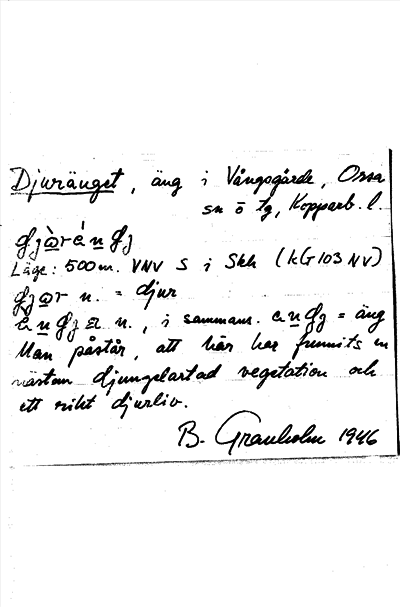 Djuränget, äng i Vångsgärde, Orsa
sn ö tg, Kopparb. l.
Läge: 500m. VNV S i Skh (kG103 NV)
n. = djur
n., i sammans. = äng
Man påstår, att här har funnits en
nästan djungelartad vegetation och
ett rikt djurliv.
B. Granholm 1946